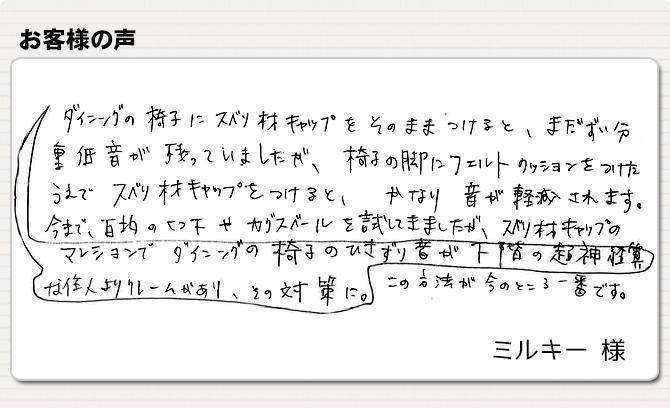 お客様の声
ダイニングの椅子にスベリ材キャップをそのままつけると、まだずい分
重低音が残っていましたが、椅子の脚にフェルトクッションをつけた
うえで スベリ材キャップをつけると、かなり音が軽減されます。
今まで、百均のくつ下やカグスベールを試してきましたが、スベリ材キャップの
マンションでダイニングの椅子のひきずり音が下階の超神経質
な住人よりクレームがあり、その対策に。この方法が今のところ一番です。
ミルキー 様